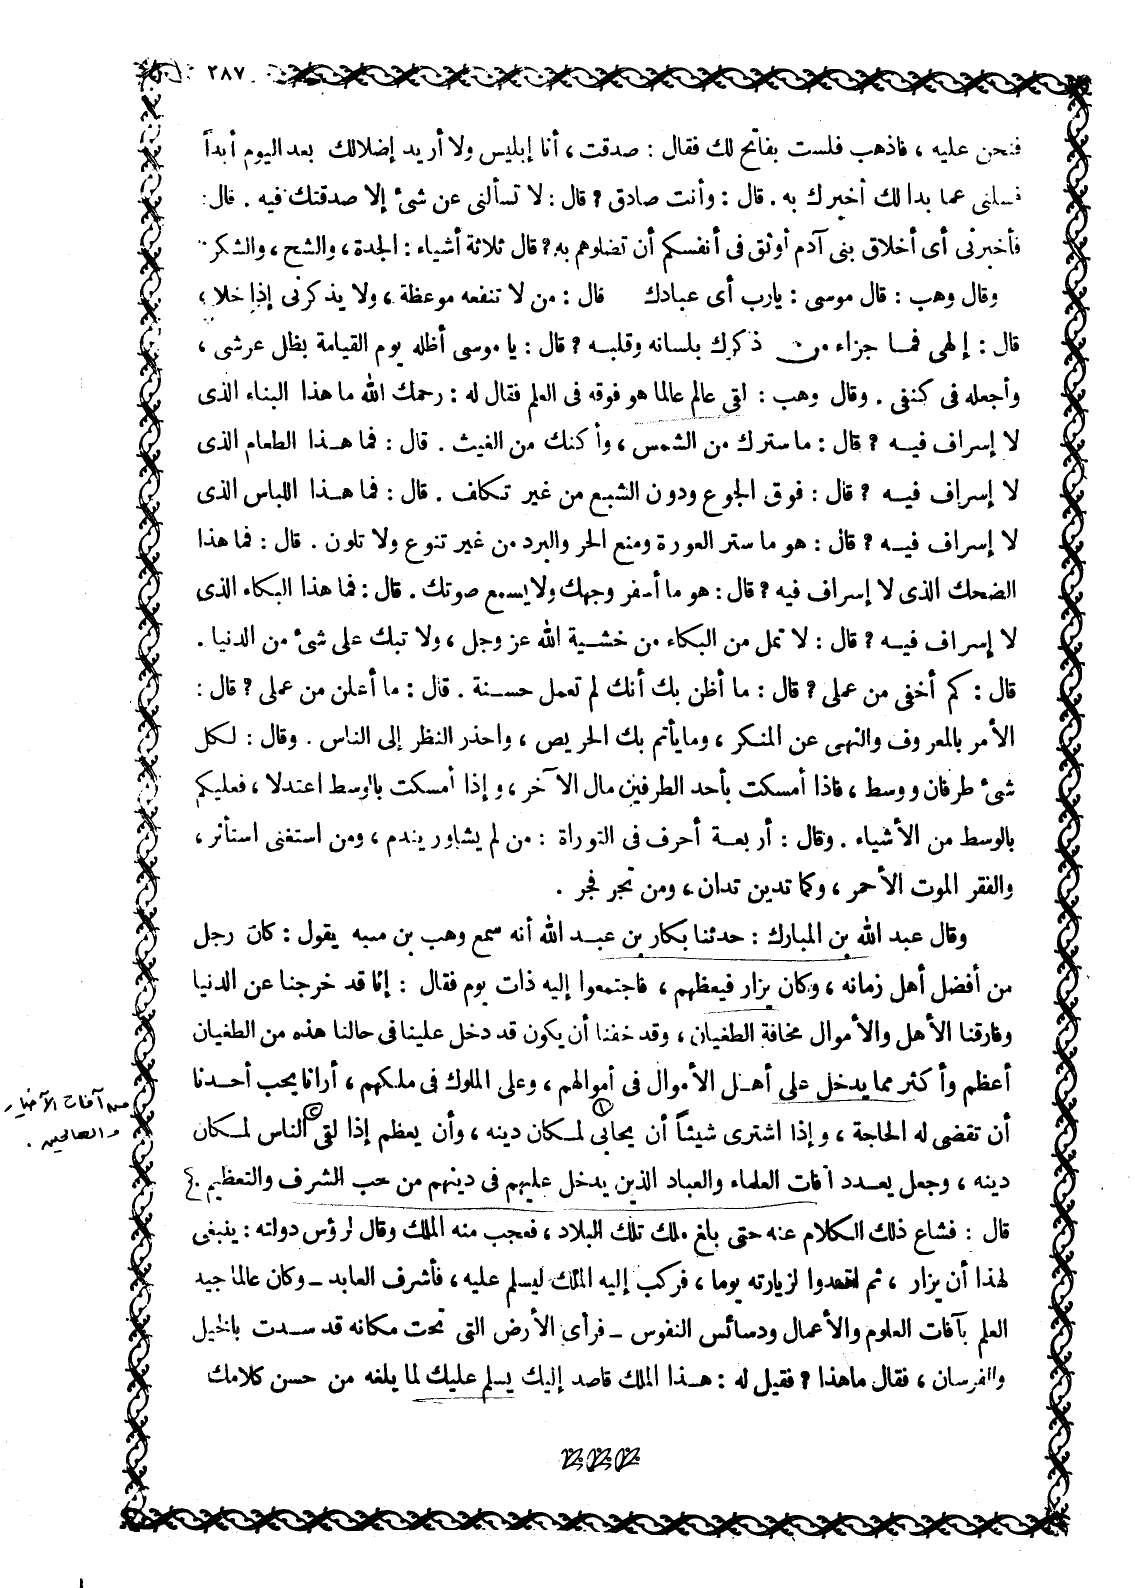 ٢٨٧
فنحن عليه ، فاذهب فلست بفاتح لك فقال : صدقت ، أنا إبليس ولا أريد إضلالك بعد اليوم أبداً
فسلنى عما بدا لك أخبرك به . قال : وأنت صادق ? قال : لا تسألنى عن شىء إلا صدقتك فيه . قال :
فأخبرنى أى أخلاق بنى آدم أوثق فى أنفسكم أن تضلوهم به ? قال ثلاثة أشياء : الجدة ، والشح ، والشكر
وقال وهب : قال موسى : يارب أى عبادك قال : من لا تنفعه موعظة ، ولا يذكرنى إذا خلا ؛
قال : إلهى فما جزاء من ذكرك بلسانه وقلبه ? قال : يا موسى أظله يوم القيامة بظل عرشى ،
وأجعله فى كنفى . وقال وهب : لقى عالم عالما هو فوقه فى العلم فقال له : رحمك الله ما هذا البناء الذى
لا إسراف فيه ? قال : ما سترك من الشمس ، وأكنك من الغيث . قال : فما هذا الطعام الذى
لا إسراف فيه ? قال : فوق الجوع ودون الشبع من غير تكلف . قال : فما هذا اللباس الذى
لا إسراف فيه ? قال : هو ما ستر العورة ومنع الحر والبرد من غير تنوع ولا تلون . قال : فما هذا
الضحك الذى لا إسراف فيه ? قال : هو ما أسفر وجهك ولا يسمع صوتك . قال : فما هذا البكاء الذى
لا إسراف فيه ? قال : لا تمل من البكاء من خشية الله عز وجل ، ولا تبك على شىء من الدنيا .
قال : كم أخفى من عملى ? قال : ما أظن بك أنك لم تعمل حسنة . قال : ما أعلن من عملى ? قال :
الأمر بالمعروف والنهى عن المنكر ، وما يأتم بك الحريص ، واحذر النظر إلى الناس . وقال : لكل
شىء طرفان ووسط ، فاذا أمسكت بأحد الطرفين مال الآخر ، وإذا أمسكت بالوسط اعتدلا ، فعليكم
بالوسط من الأشياء . وقال : أربعة أحرف فى التوراة : من لم يشاور يندم ، ومن استغنى استأثر ،
والفقر الموت الأحمر ، وكما تدين تدان ، ومن تجر فجر .
وقال عبد الله بن المبارك : حدثنا بكار بن عبد الله أنه سمع وهب بن منبه يقول : كان رجل
من أفضل أهل زمانه ، وكان يزار فيعظهم ، فاجتمعوا إليه ذات يوم فقال : إنا قد خرجنا عن الدنيا
وفارقنا الأهل والأموال مخافة الطغيان ، وقد خفنا أن يكون قد دخل علينا فى حالنا هذه من الطغيان
أعظم وأكثر مما يدخل على أهل الأموال فى أموالهم ، وعلى الملوك فى ملكهم ، أرانا يحب أحدنا
من آفات الأخيار
والصالحين .
أن تقضى له الحاجة ، وإذا اشترى شيئاً أن يحابى ① لمكان دينه ، وأن يعظم إذا لقى ② الناس لمكان
دينه ، وجعل يعدد آفات العلماء والعباد الذين يدخل عليهم فى دينهم من حب الشرف والتعظيم .
قال : فشاع ذلك الكلام عنه حتى بلغ ملك تلك البلاد ، فعجب منه الملك وقال لرؤس دولته : ينبغى
لهذا أن يزار ، ثم اتعدوا لزيارته يوما ، فركب إليه الملك ليسلم عليه ، فأشرف العابد – وكان عالما جيد
العلم بآفات العلوم والأعمال ودسائس النفوس – فرأى الأرض التى تحت مكانه قد سدت بالخيل
والفرسان ، فقال ماهذا ? فقيل له : هذا الملك قاصد إليك يسلم عليك لما بلغه من حسن كلامك